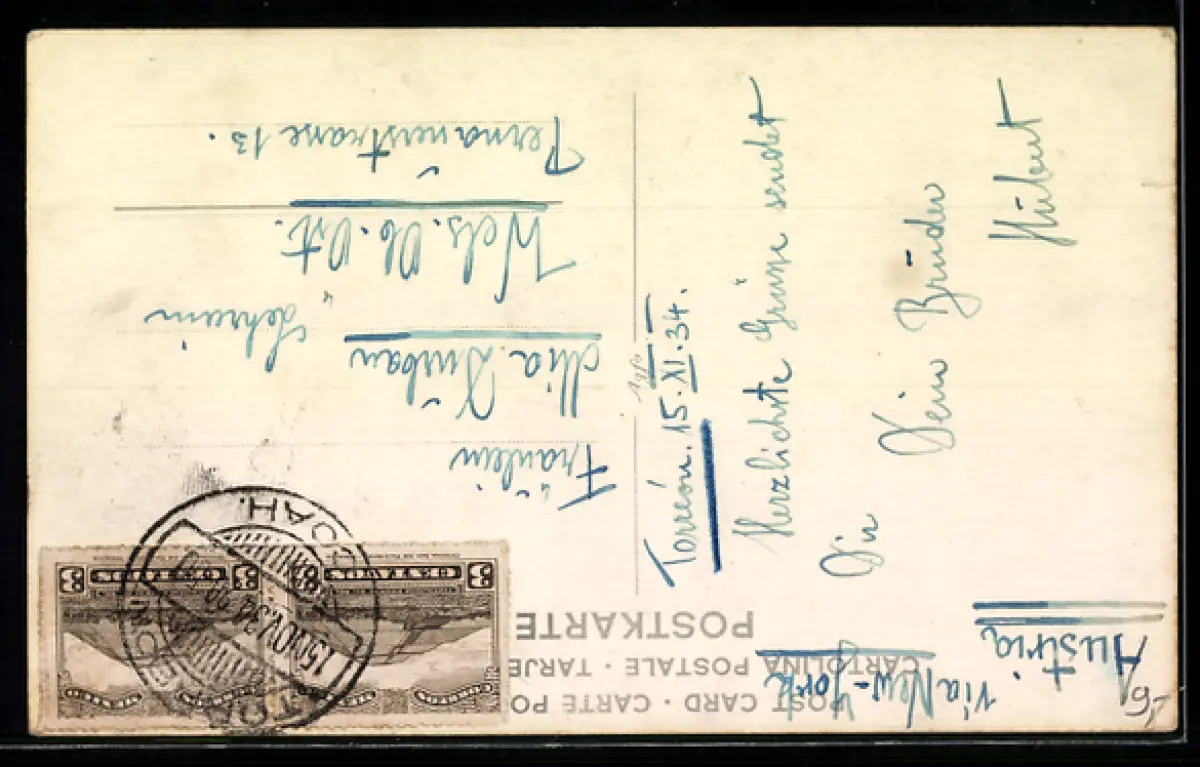 POST CARD · CARTE PO
CARTOLINA POSTALE · TARJE
POSTKARTE
via New-York
Austria
Torreón. 15. XI. 34.
Herzlichste Grüsse sendet
Dir
Dein Brüder
Hübert
Fräulein
Mia. Dürbau
Wels. Ob. Öst.
Pernauerstrasse 13.
15 NOV. 34
COAH.
3
3